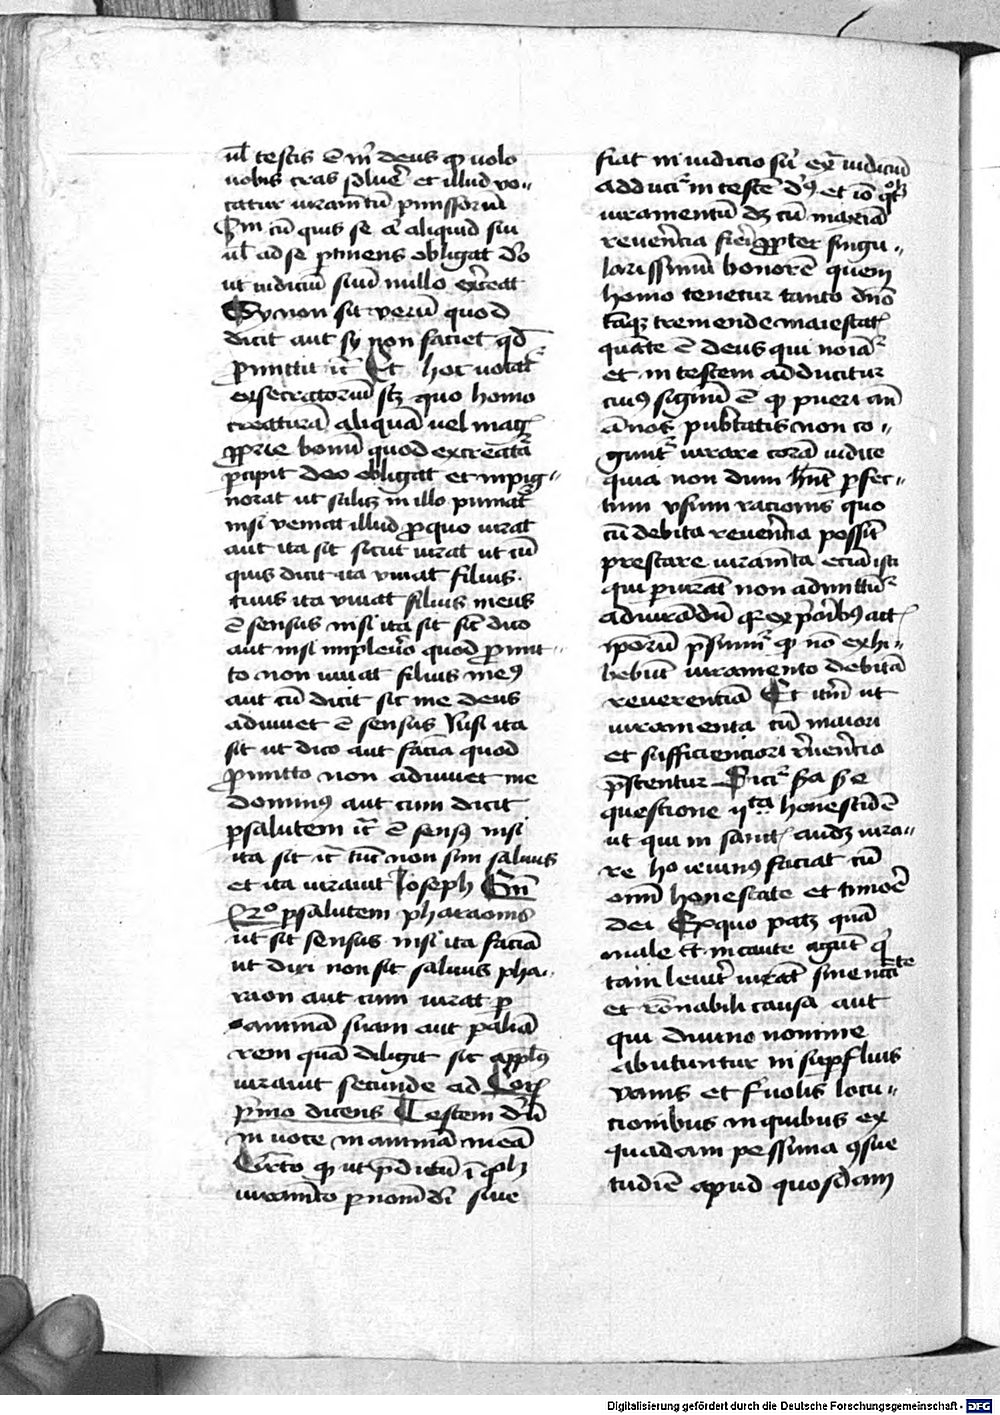 ul testis ē m̄ deus qp uolo
uobis cras soluē et illud vo-
catur iuramētū pmissoriū
Itm cū quis se a͞ aliquid sui
ul ad se ptinens obligat dō
ut iudiciū suū in illo exceat
Sy non sit verū quod
dicit aut sy non faciet qd
pmittit ī Et hoc uocat
exsecratoriū scz quo homo
creaturā aliquā vel mag
pprie bonū quod ex creata
pcipit deo obligat et inpig-
norat ut scilicz in illo puniat
nisi veniat illud pro quo iurat
aut ita sit sicut iurat ut cū
quis dicit ita viuat filius
tuus ita viuat filius meus
ē sensus nisi ita sit sic dico
aut nisi impleuō quod pmit-
to non viuat filius me9
aut cū dicit sic me deus
adiuuet ē sensus Nisi ita
sit ut dico aut faciā quod
pmitto non adiuuet me
domin9 aut cum dicit
psalutem ī ē sens9 nisi
ita sit ī tūc non sim saluus
et ita iurauit Joseph Gn̄
42o psalutem pharaonis
ut sit sensus nisi ita faciā
ut dixi non sit saluus pha-
raon aut cum iurat p
animā suam aut p aliā
rem quā diligit sic appl9
iurauit secunde ad Cor
pmo dicens Testem dm̄
in uoco in animā meā
qp ut pdictū ī
iuramēto p nom̄ dī siue
fiat in iudicio siī ext iudiciū
adducit in testē d9 et iō
iuramentū dz cū maxīa
reuerēcia fieri ppter singu-
larissimū honorē quem
homo tenetur tanto dnō
tāqz tremende maiestat
quāte ē deus qui noīat
et in testem adducitur
cui9 signū ē qp pueri an̄
ānos pubtatis non co-
gunt iurare corā iudice
quia non dum hn̄t pfec-
tum vsum racionis quo
cū debita reuerēcia possīt
prestare iuramēta eciā isti
qui piurāt non admittūt
ad iurādū qr ex pōrib9 act
ipsorū psumit qp nō exhi-
bebūt iuramento debitā
reuerentiā Et itm ut
iuramenta cū maiori
et sufficienciori reuerēcia
pstentur Dicit
questione honestū ē
ut qui in sanct audz iura-
re ho ieiun9 faciat cū
omī honestate et timoē
dei Ex quo patz quā
male et incaute agūt qui
tam leuit iurāt sine ncc̄ite
et rōnabili causa aut
qui diuino nomine
abutuntur in supfluis
vanis et friuolis locu-
cionibus in quibus ex
quadam pessima 9sue
tudiē apud quosdam
Digitalisierung gefördert durch die Deutsche Forschungsgemeinschaft - DFG